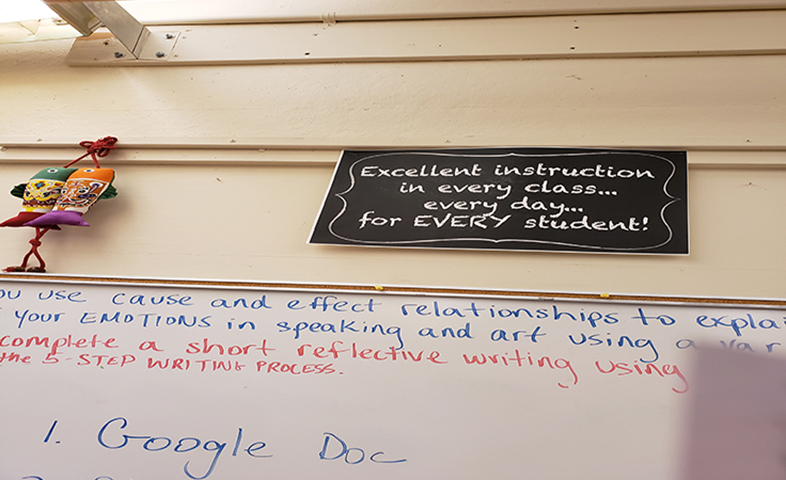 Excellent instruction
in every class...
every day...
for EVERY student!
you use cause and effect relationships to explai
YOUR EMOTIONS in speaking and art using a var
complete a short reflective writing using
the 5-STEP WRITING PROCESS.
1. Google Doc